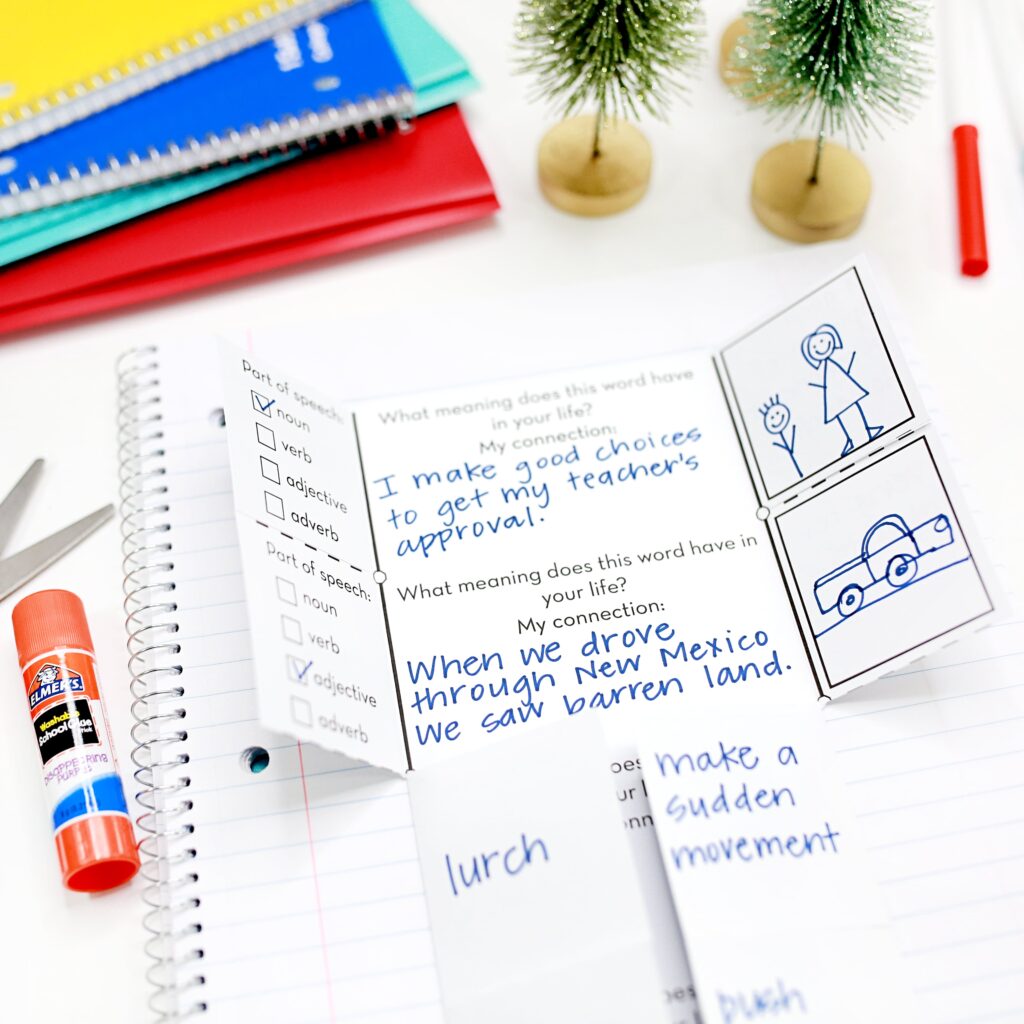 Part of speech:
noun
verb
adjective
adverb
What meaning does this word have
in your life?
My connection:
I make good choices
to get my teacher's
approval.
Part of speech:
noun
verb
adjective
adverb
What meaning does this word have in
your life?
My connection:
When we drove
through New Mexico
we saw barren land.
ELMER'S
Washable
School Glue
Stick
DISAPPEARING
PURPLE
lurch
make a
sudden
movement
push